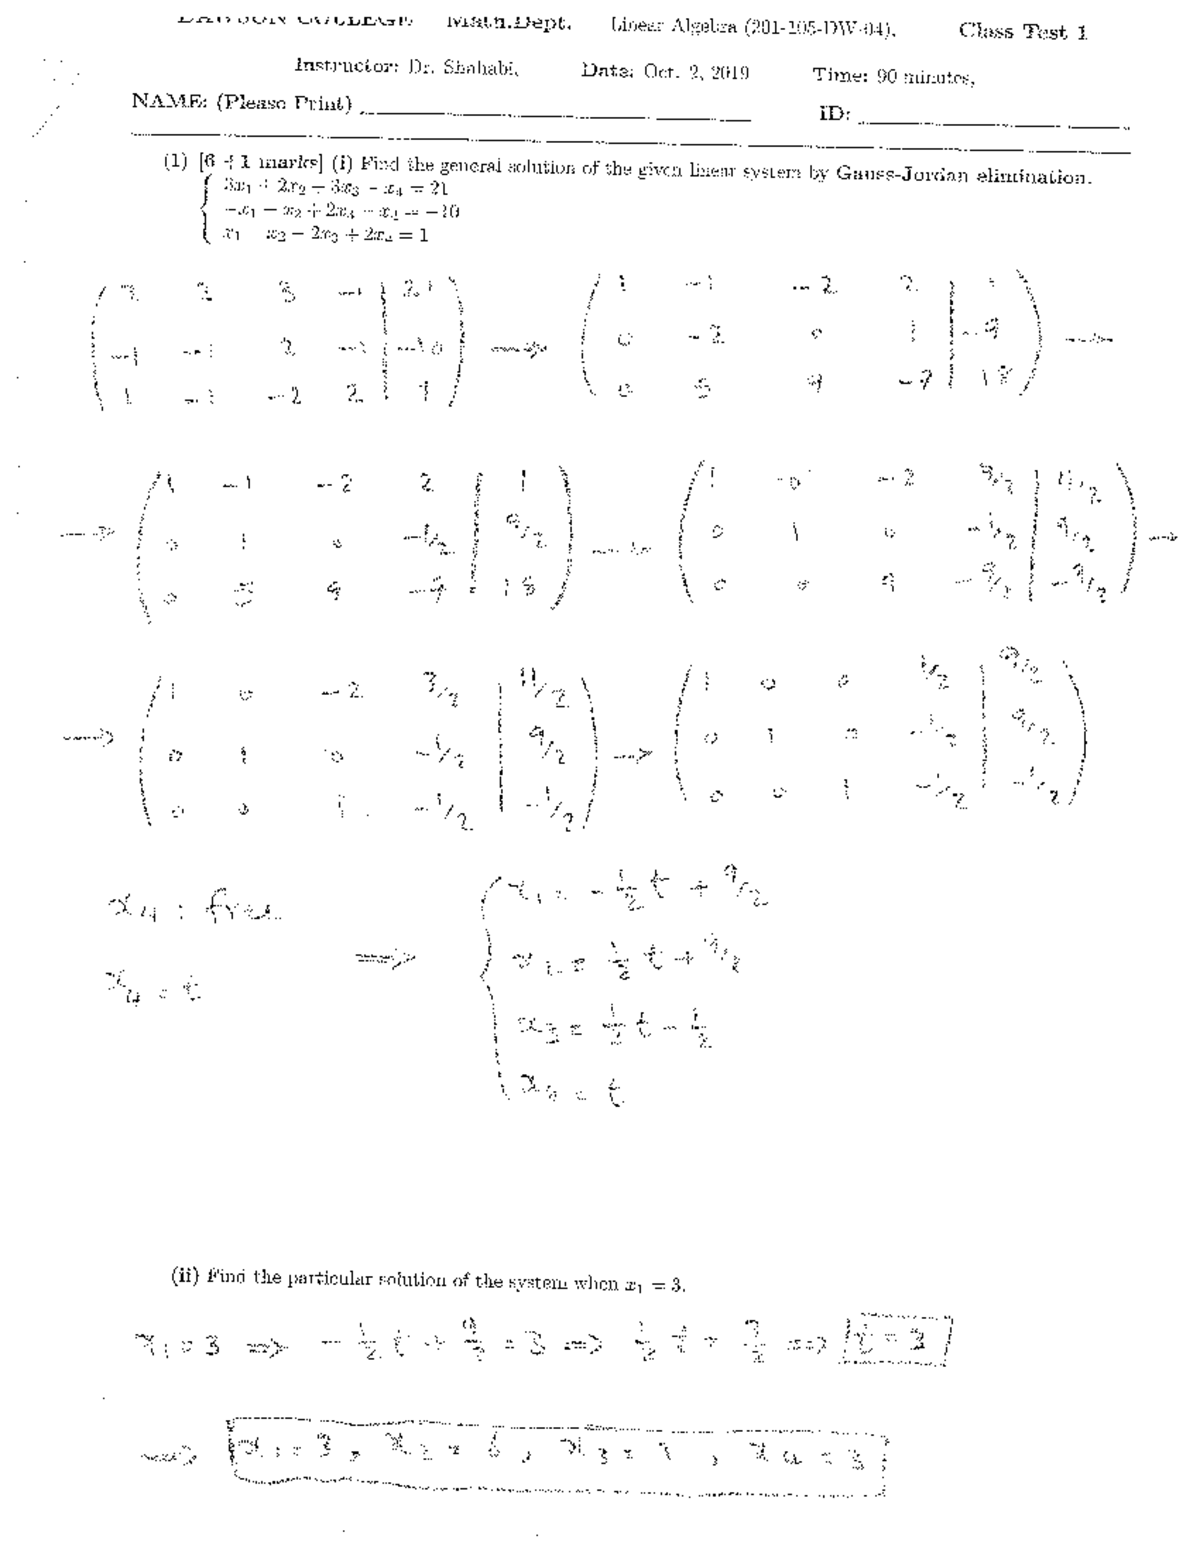 DAWSON COLLEGE Math.Dept. Linear Algebra (201-105-DW-04). Class Test 1
Instructor: Dr. Shahabi. Date: Oct. 2, 2019 Time: 90 minutes.
NAME: (Please Print) ID:
(1) [6 + 1 marks] (i) Find the general solution of the given linear system by Gauss-Jordan elimination.
3x₁ + 2x₂ + 3x₃ − x₄ = 21
−x₁ − x₂ + 2x₃ − x₄ = −10
x₁ − x₂ − 2x₃ + 2x₄ = 1
( 3 2 3 −1 | 21 ) ( 1 −1 −2 2 | 1 )
( −1 −1 2 −1 | −10 ) → ( 0 −2 0 1 | −9 ) →
( 1 −1 −2 2 | 1 ) ( 0 5 9 −7 | 18 )
( 1 −1 −2 2 | 1 ) ( 1 0 −2 3/2 | 11/2 )
→ ( 0 1 0 −1/2 | 9/2 ) → ( 0 1 0 −1/2 | 9/2 ) →
( 0 5 9 −7 | 18 ) ( 0 0 9 −9/2 | −9/2 )
( 1 0 −2 3/2 | 11/2 ) ( 1 0 0 1/2 | 9/2 )
→ ( 0 1 0 −1/2 | 9/2 ) → ( 0 1 0 −1/2 | 9/2 )
( 0 0 1 −1/2 | −1/2 ) ( 0 0 1 −1/2 | −1/2 )
x₄ : free
x₄ = t
⇒
x₁ = −1/2 t + 9/2
x₂ = 1/2 t + 9/2
x₃ = 1/2 t − 1/2
x₄ = t
(ii) Find the particular solution of the system when x₁ = 3.
x₁ = 3 ⇒ −1/2 t + 9/2 = 3 ⇒ 1/2 t = 3/2 ⇒ t = 3
⇒ x₁ = 3, x₂ = 6, x₃ = 1, x₄ = 3